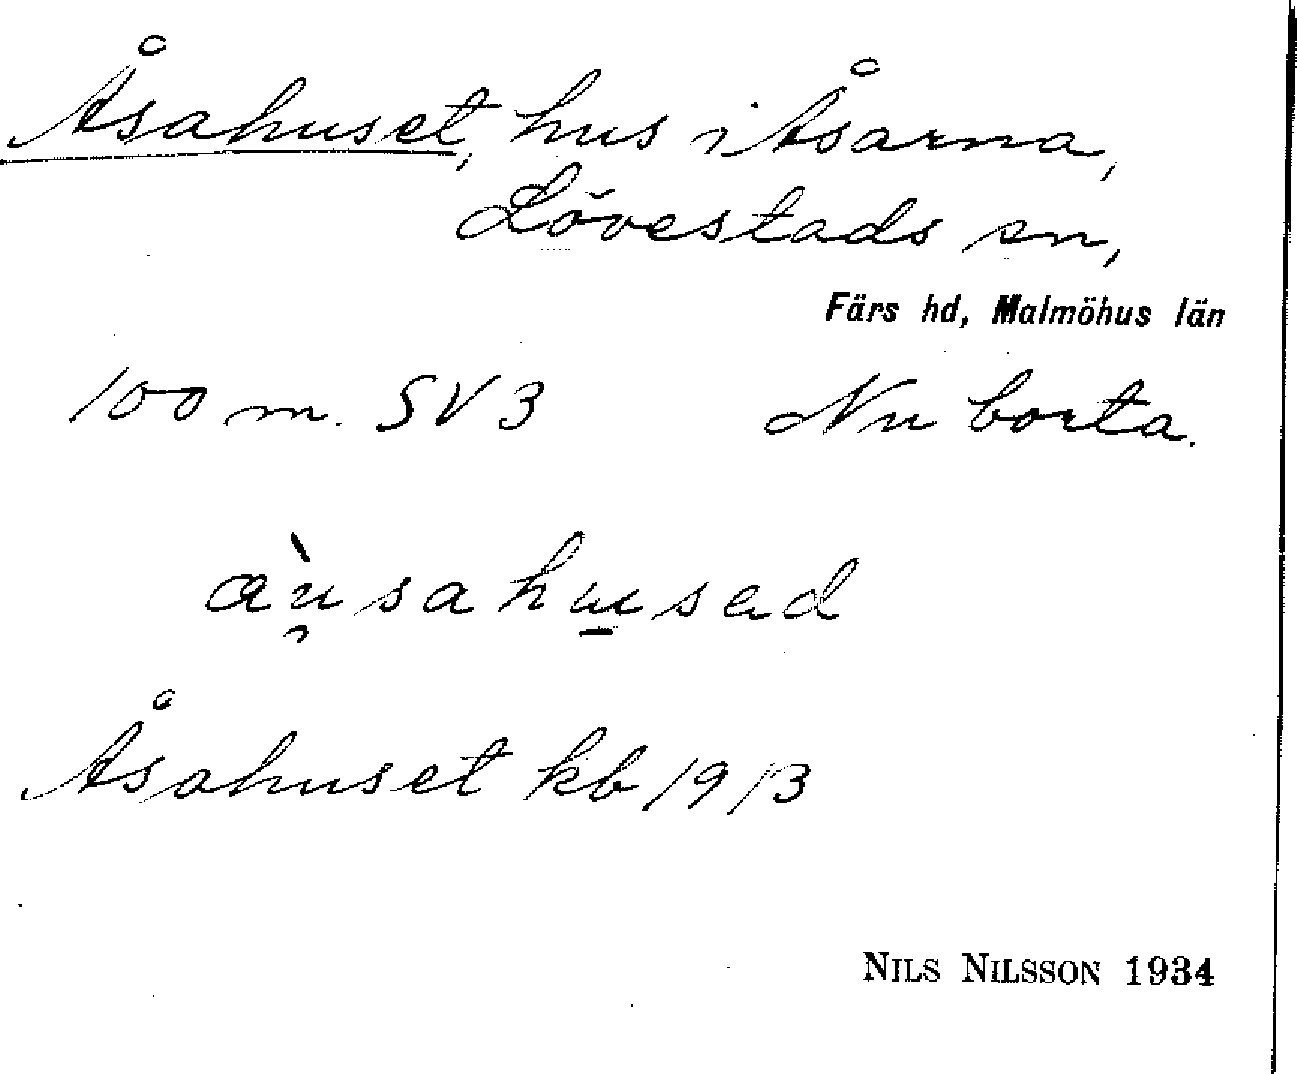 Åsahuset, hus i Åsarna,
Lövestads sn,
Färs hd, Malmöhus län
100 m. SV 3 Nu borta.
Åsahuset kb 1913
NILS NILSSON 1934